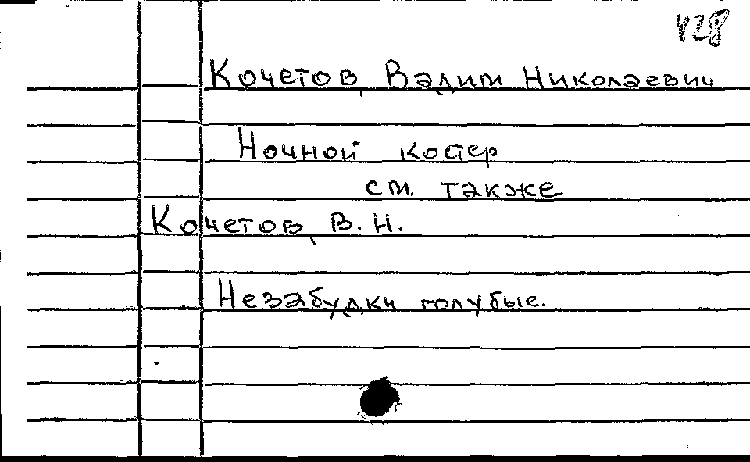 428
Кочетов, Вадим Николаевич
Ночной костер
см. также
Кочетов, В. Н.
Незабудки голубые.